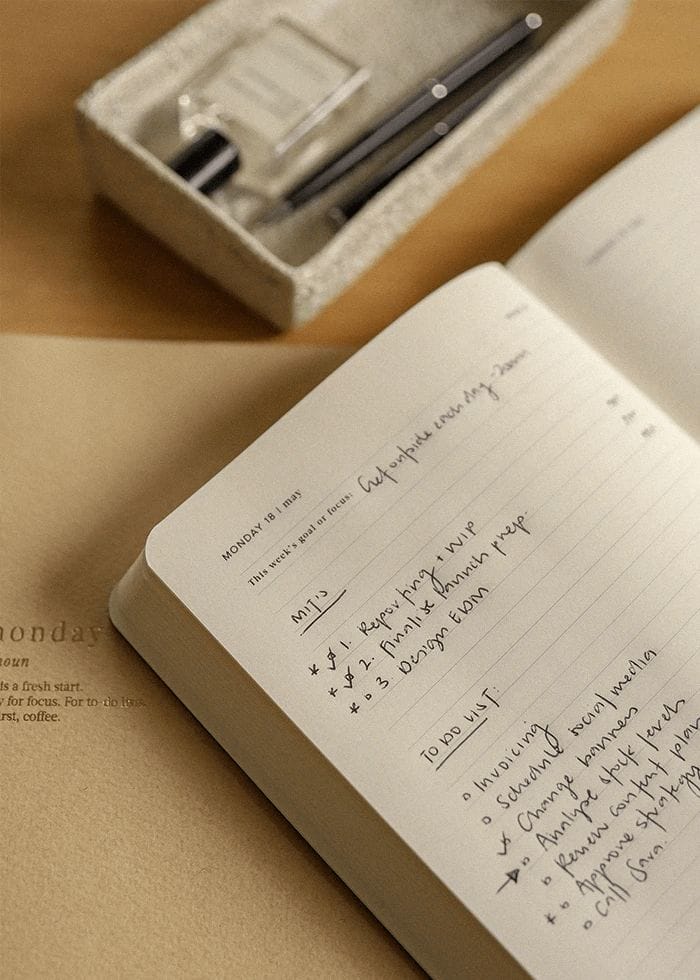 MONDAY 18 | may
This week's goal or focus: Get outside each day - 20min
MIT'S
* 1. Reporting + WIP
* 2. Finalise launch prep.
* 3. Design EDM
TO DO LIST:
Invoicing
Schedule social media
Change banners
Analyse stock levels
Review content plan
* Approve strategy
Call Sara.
monday
noun
is a fresh start.
y for focus. For to-do lists.
irst, coffee.